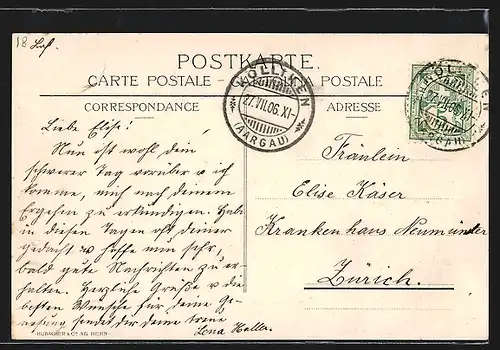 18 Luf.
POSTKARTE.
CARTE POSTALE - CARTOLINA POSTALE
CORRESPONDANCE
ADRESSE
KÖLLIKEN
27.VII.06.XI-
(AARGAU)
KÖLLIKEN
27.VII.06.XI-
(AARGAU)
Liebe Elise!
Nun ist wohl dein
schwerer Tag vorüber u ich
komme, mich nach deinem
Ergehen zu erkundigen. Hab
in diesen Tagen oft deiner
gedacht u hoffe nun sehr,
bald gute Nachrichten zu er-
halten. Herzliche Grüße u die
besten Wünsche für deine Ge-
nesung sendet dir deine treue
Lena Haller
Fräulein
Elise Käser
Krankenhaus Neumünster
Zürich.
HUBACHER & Cº AG. BERN